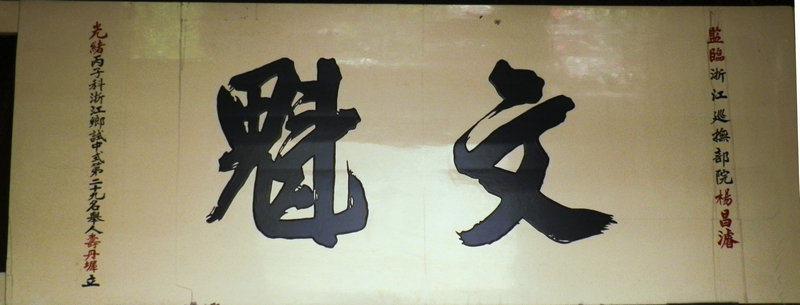 監臨浙江巡撫部院楊昌濬
文魁
光緒丙子科浙江鄉試中式第二十九名舉人壽丹墀立